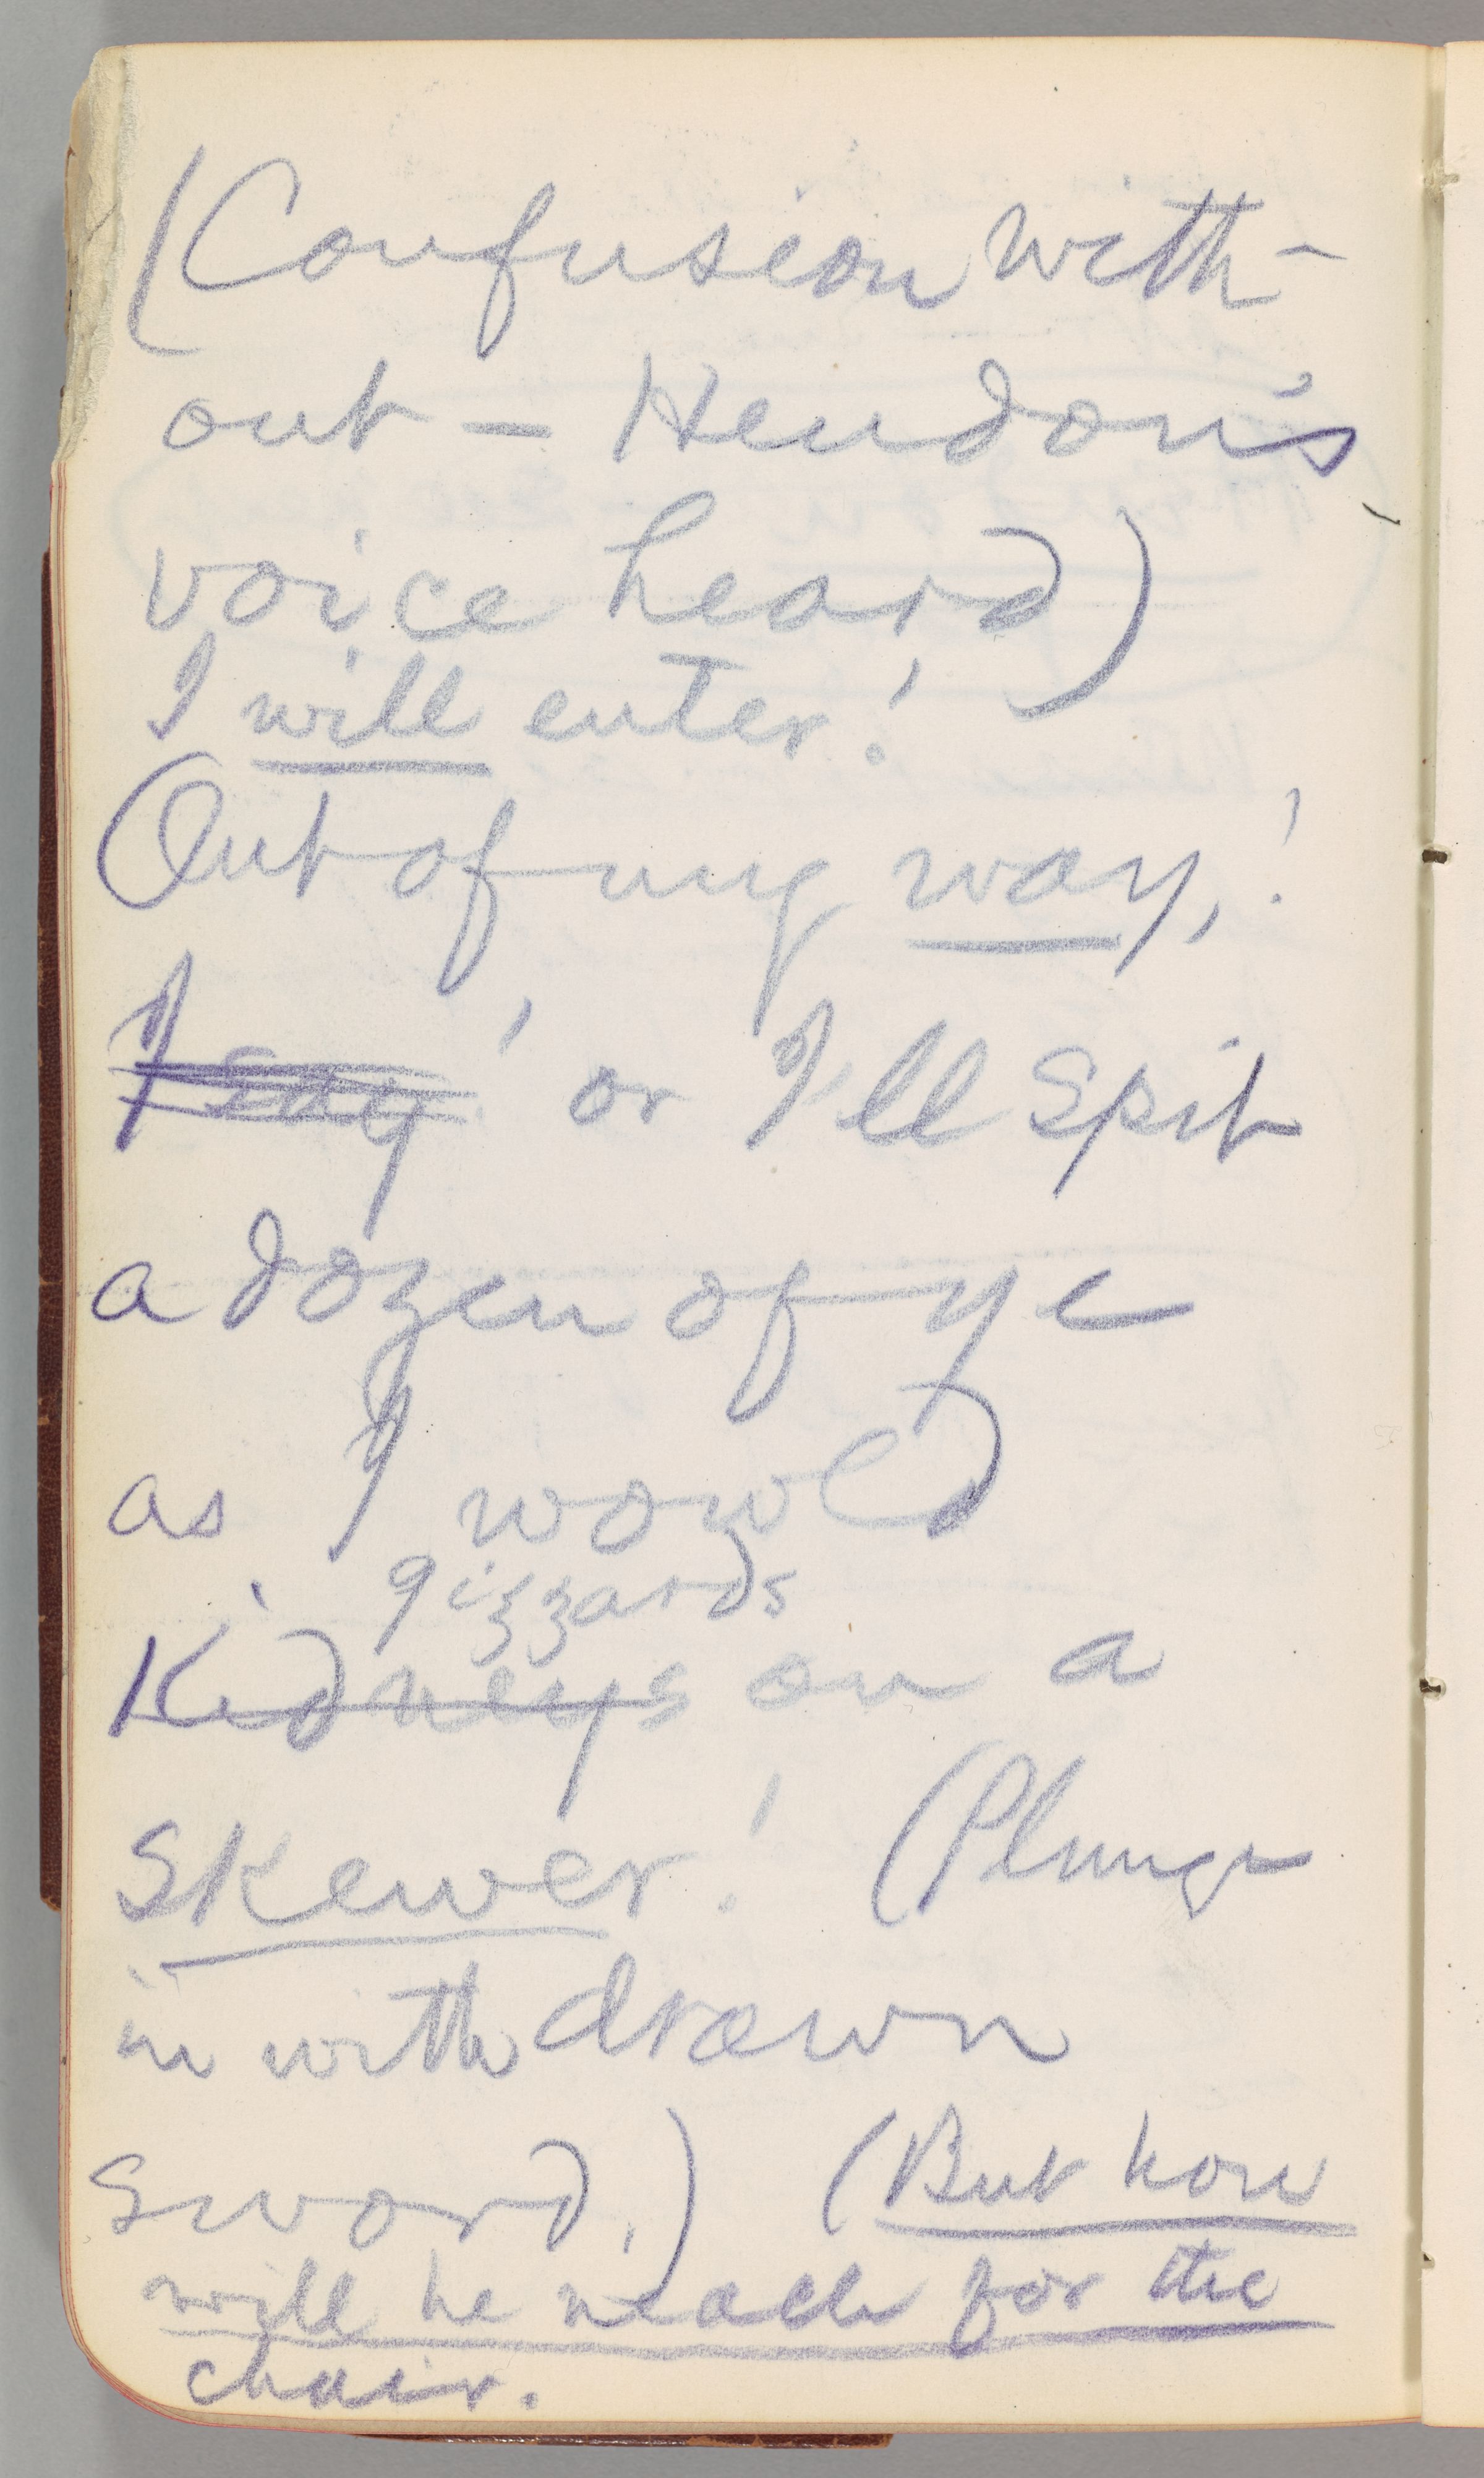 (Confusion with-
out — Hendon's
voice heard)
I will enter!
Out of my way,!
I say! or I'll spit
a dozen of ye
as I would
gizzards
Kidneys on a
skewer! (Plunge
in with drawn
sword.) (But how
will he reach for the
chair.